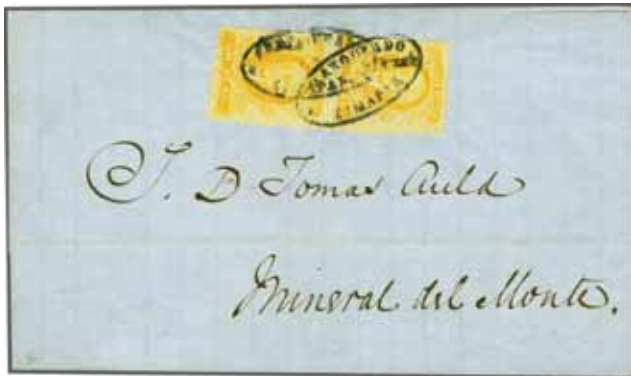 FRANQUEADO
ZIMAPAN
S. D Tomas Auld
Mineral del Monte.